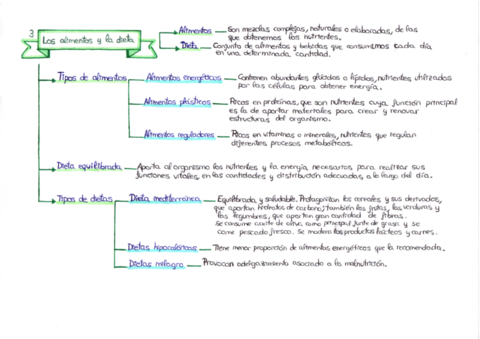 3
Los alimentos y la dieta
Alimentos — Son mezclas complejas, naturales o elaboradas, de las
que obtenemos los nutrientes.
Dieta — Conjunto de alimentos y bebidas que consumimos cada día
en una determinada cantidad.
Tipos de alimentos — Alimentos energéticos — Contienen abundantes glúcidos o lípidos, nutrientes utilizados
por las células para obtener energía.
Alimentos plásticos — Ricos en proteínas, que son nutrientes cuya función principal
es la de aportar materiales para crear y renovar
estructuras del organismo.
Alimentos reguladores — Ricos en vitaminas o minerales, nutrientes que regulan
diferentes procesos metabólicos.
Dieta equilibrada — Aporta al organismo los nutrientes y la energía necesarios para realizar sus
funciones vitales, en las cantidades y distribución adecuadas a lo largo del día.
Tipos de dietas — Dieta mediterránea — Equilibrada y saludable. Protagonizan los cereales y sus derivados,
que aportan hidratos de carbono; también las frutas, las verduras y
las legumbres, que aportan gran cantidad de fibras.
Se consume aceite de oliva, como principal fuente de grasa y se
come pescado fresco. Se modera los productos lácteos y carnes.
Dietas hipocalóricas — Tiene menor proporción de alimentos energéticos que la recomendada.
Dietas milagro — Provocan adelgazamiento asociado a la malnutrición.